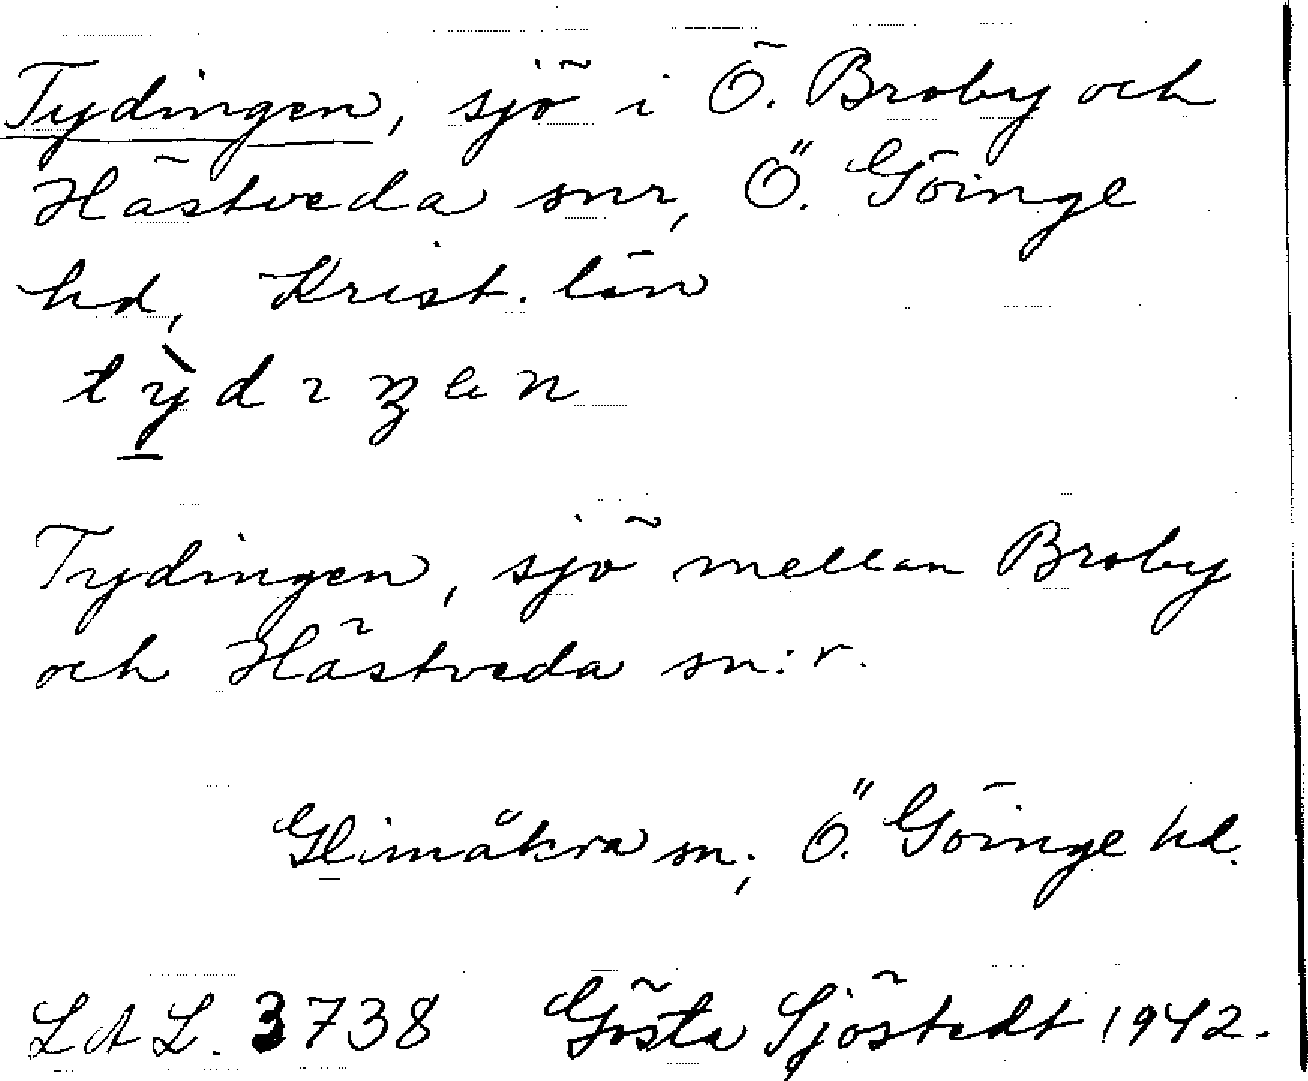 Tydingen, sjö i Ö. Broby och
Hästveda snr, Ö. Göinge
hd, Krist. län
Tydingen, sjö mellan Broby
och Hästveda sn:r.
Glimåkra sn; Ö. Göinge hd.
LAL. 3738 Gösta Sjöstedt 1942.